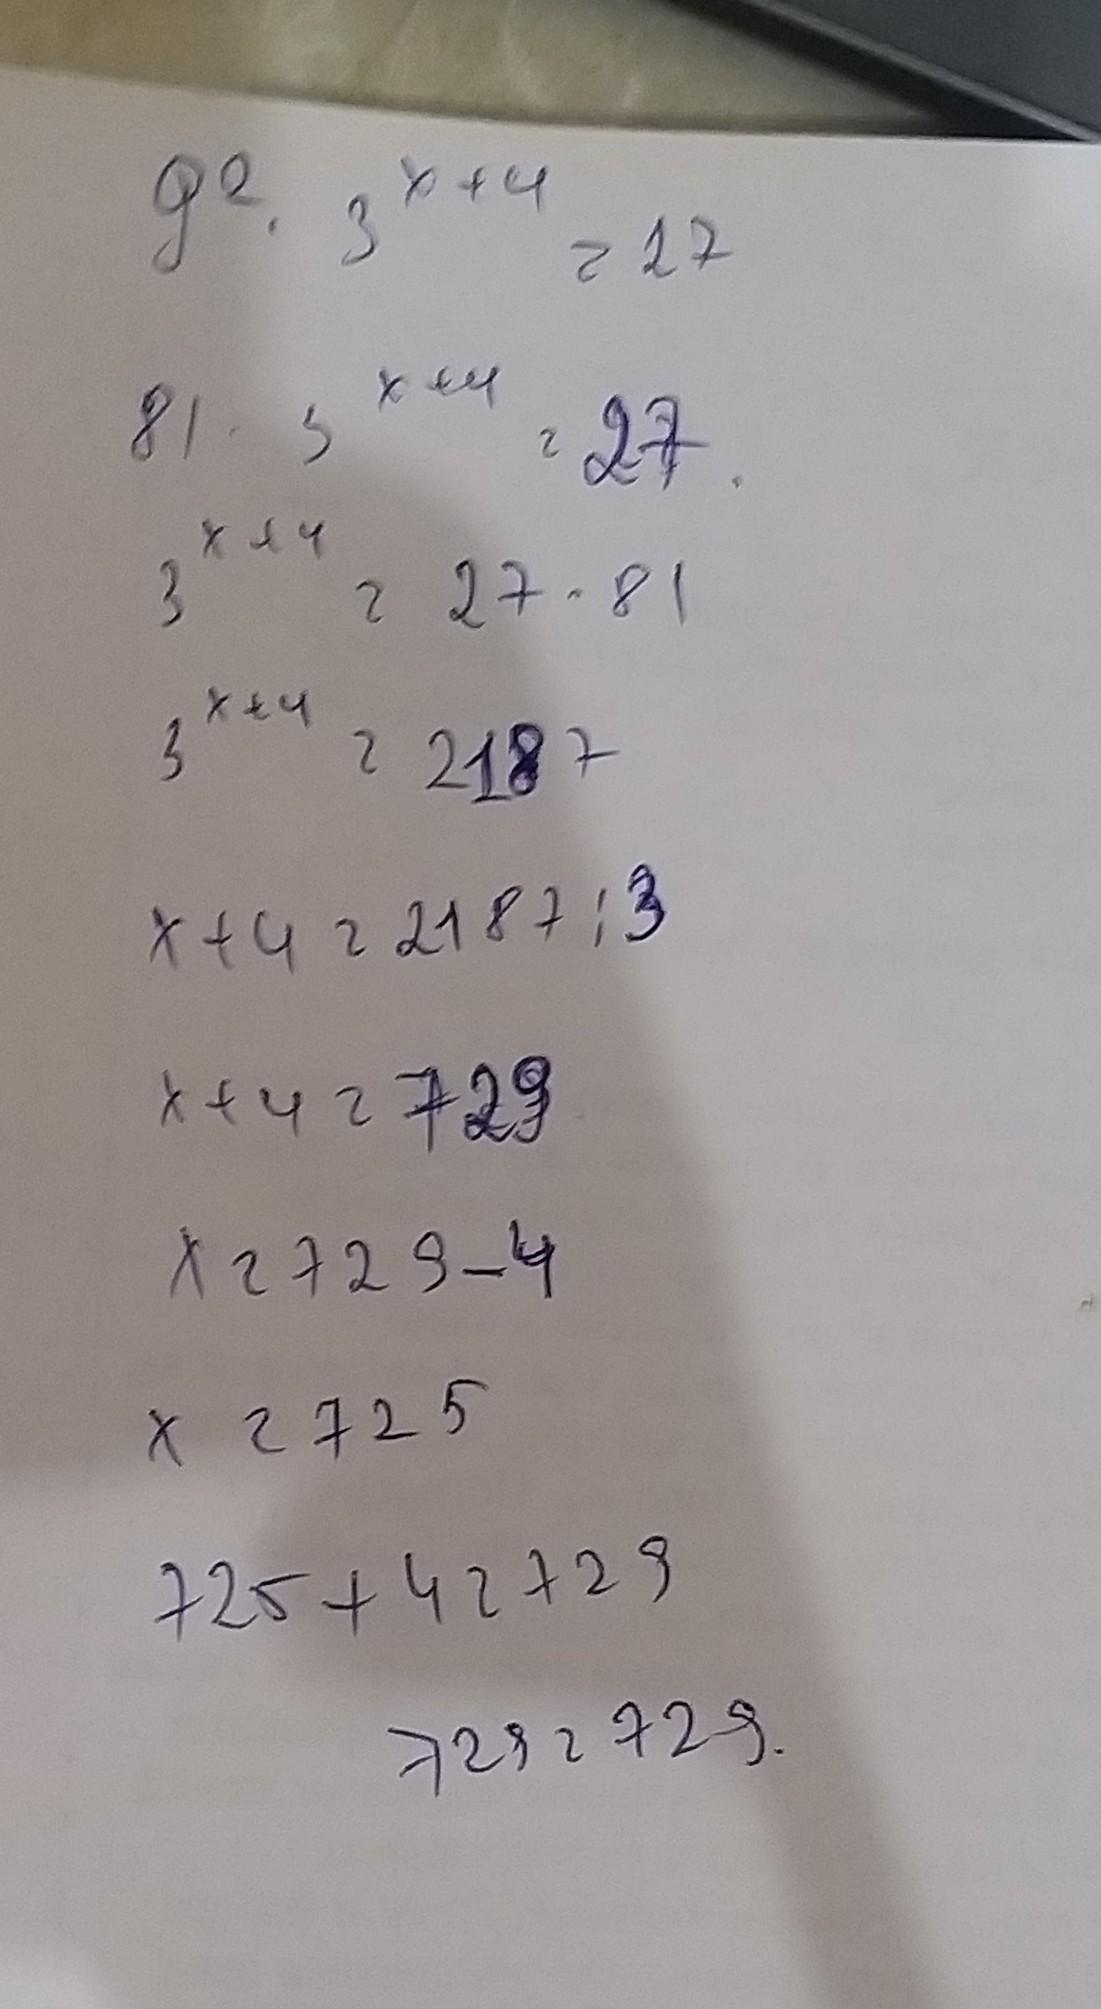 9². 3^(x+4) = 27
81 · 3^(x+4) = 27.
3^(x+4) = 27 · 81
3^(x+4) = 2187
x+4 = 2187 : 3
x+4 = 729
x = 729-4
x = 725
725+4 = 729
729 = 729.